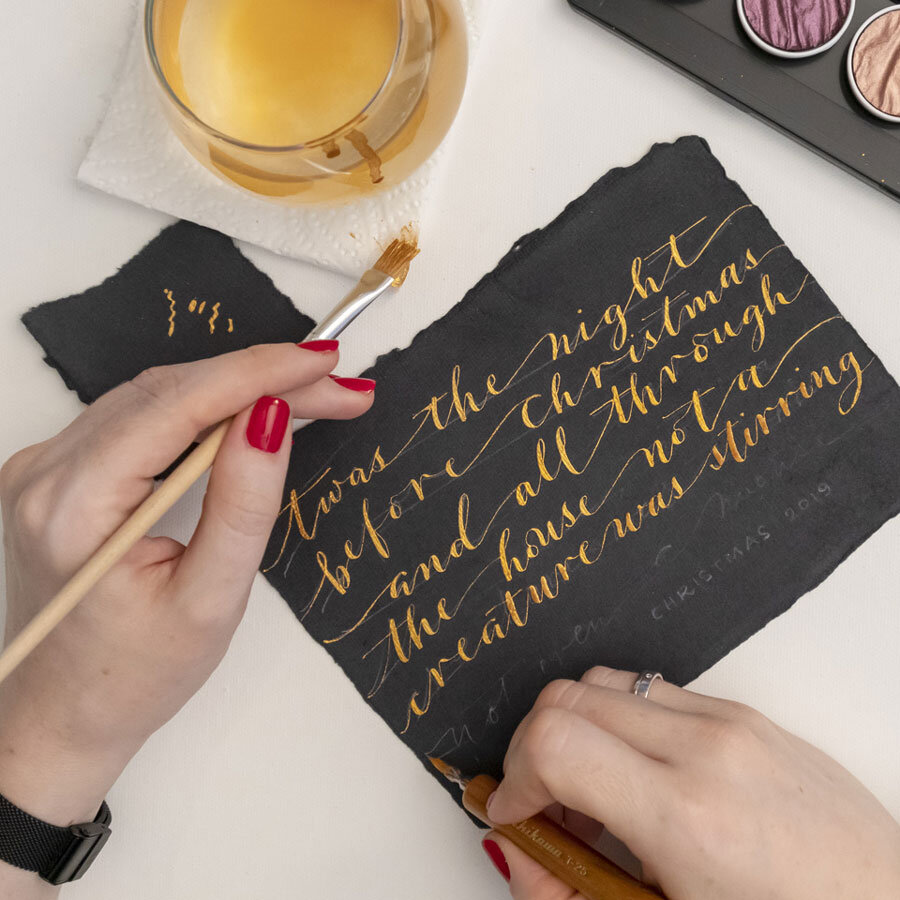 twas the night
before Christmas
and all through
the house not a
creature was stirring
Not even a mouse
CHRISTMAS 2019
T-25